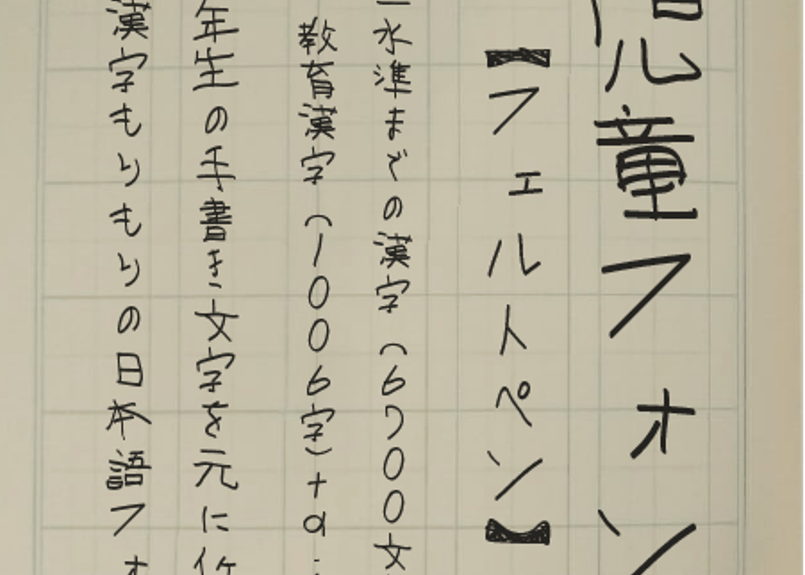 児童フォン
【フェルトペン】
水準までの漢字（6700文
教育漢字（1006字）+α
年生の手書き文字を元に作
漢字もりもりの日本語フォ